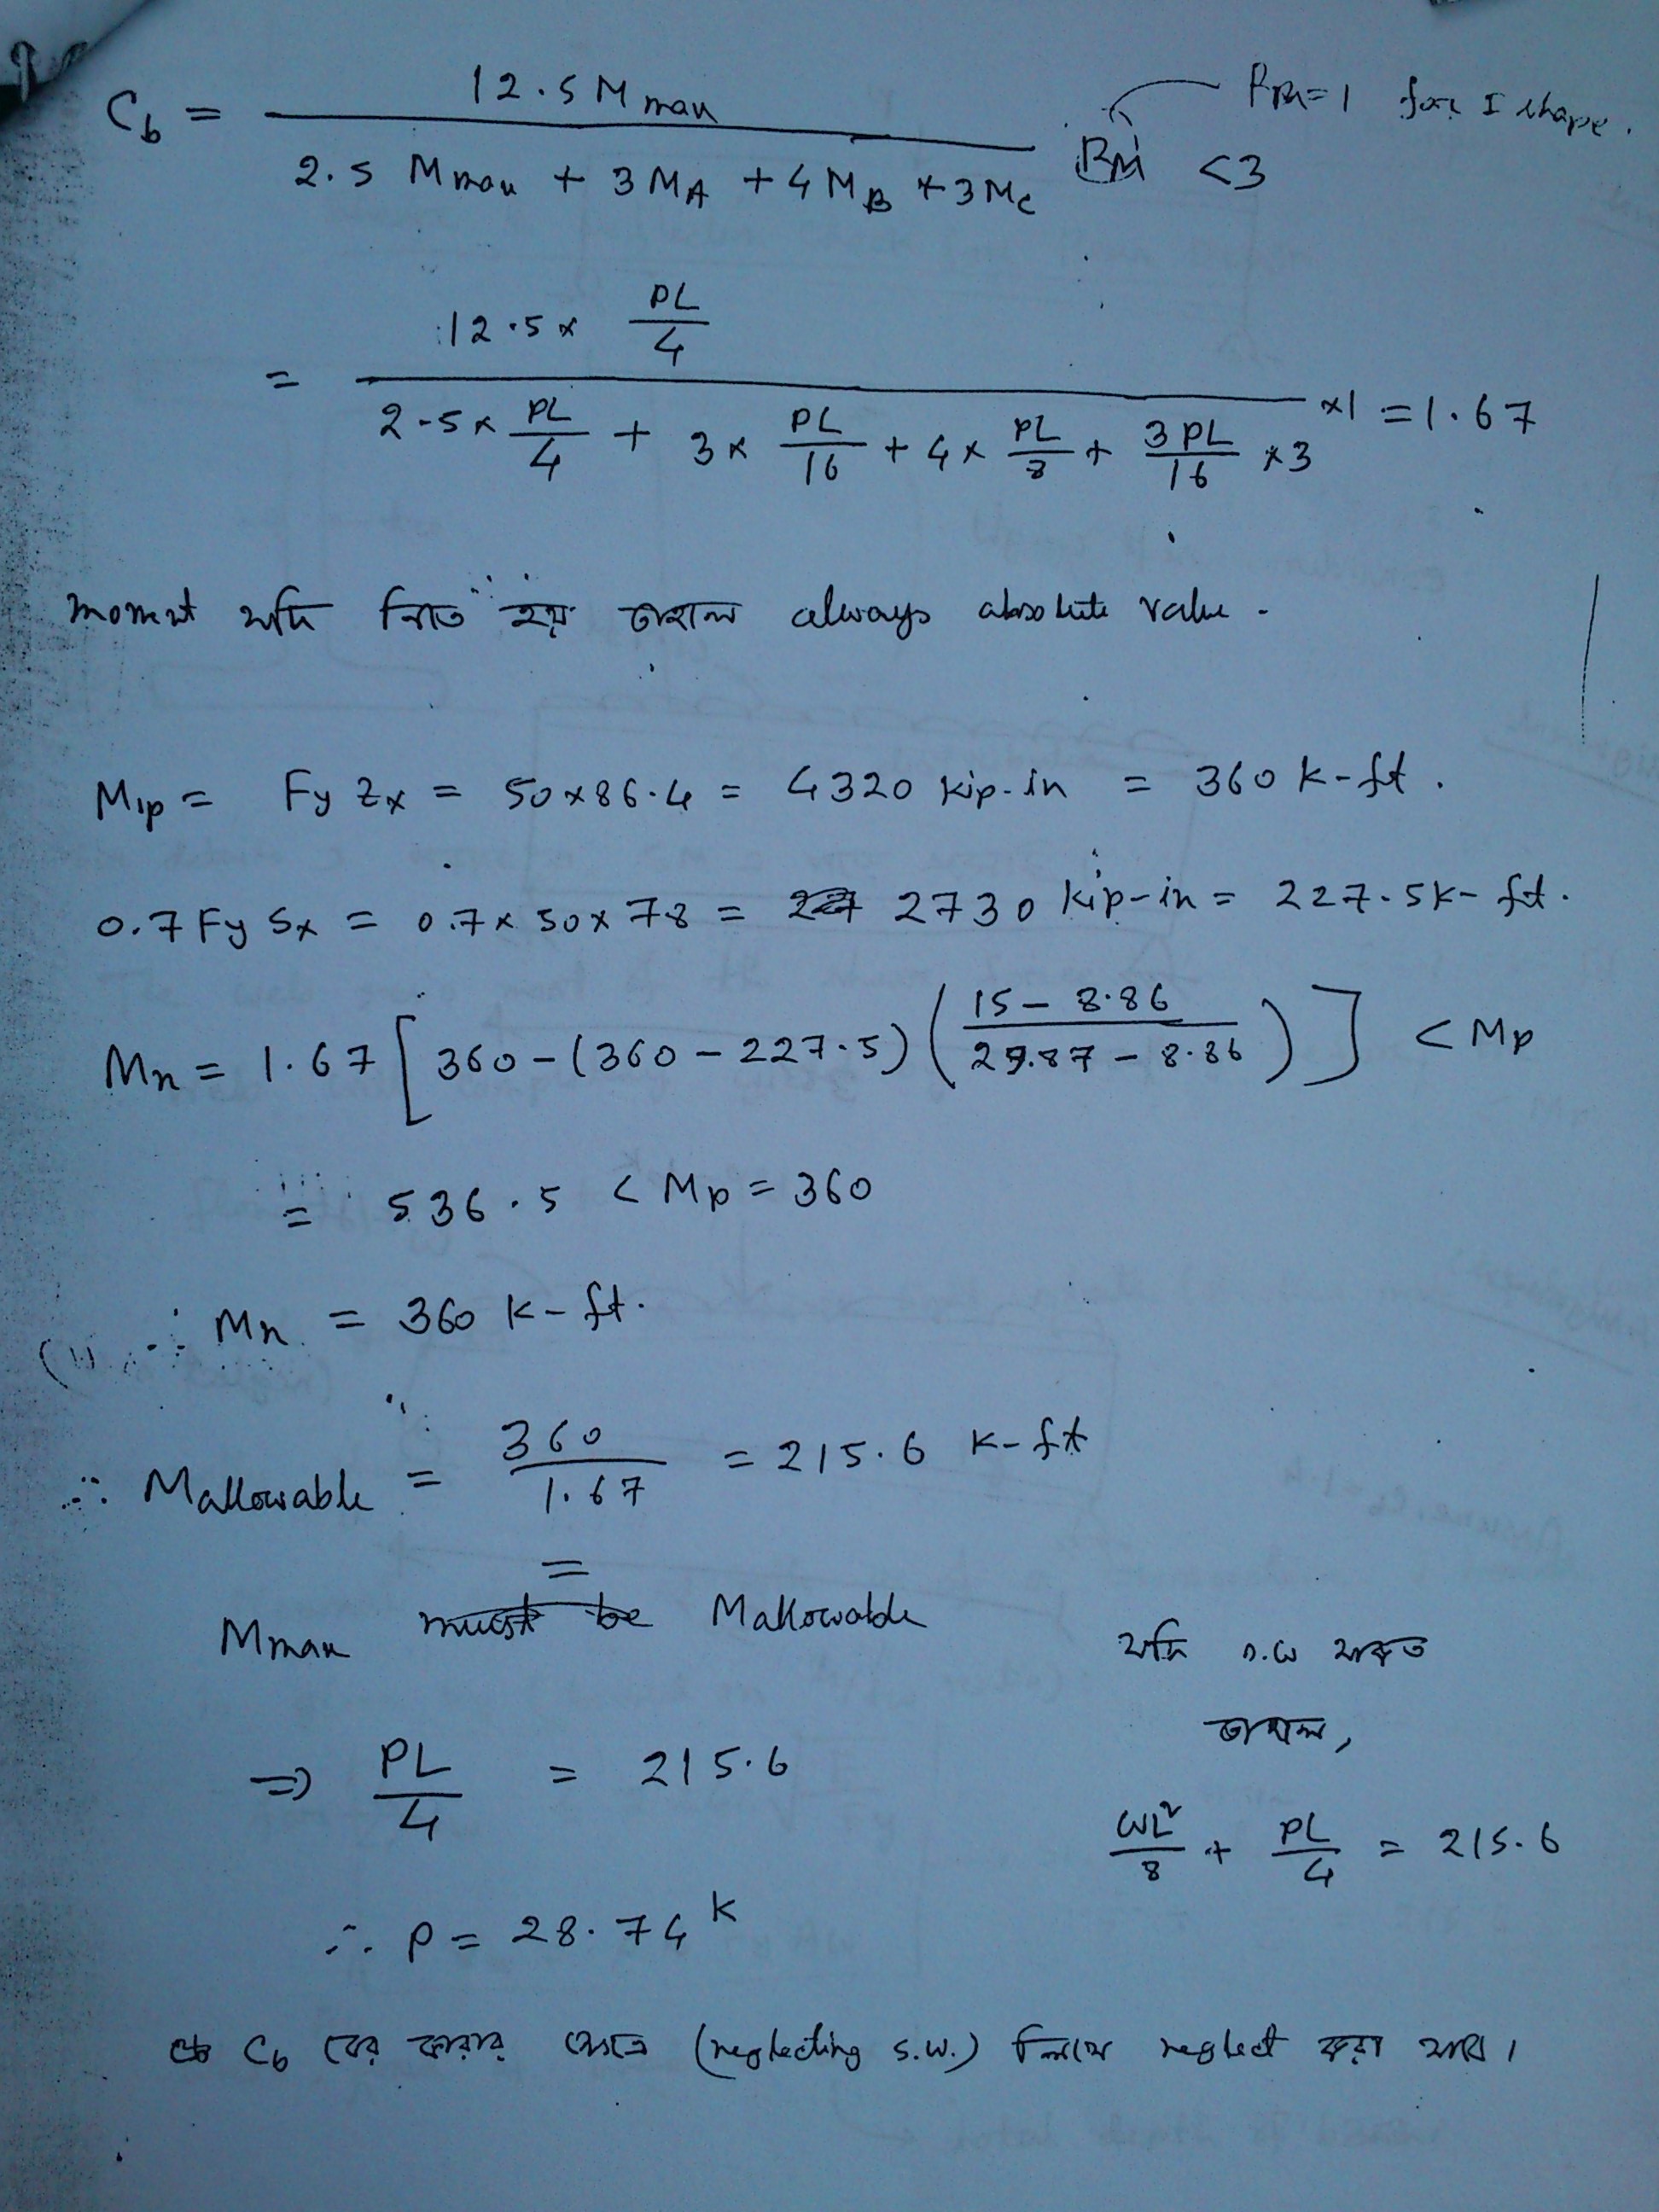 C_b = 12.5 M max / 2.5 M max + 3 M_A + 4 M_B + 3 M_C R_M < 3
R_M = 1 for I shape.
= 12.5 × PL/4 / 2.5 × PL/4 + 3 × PL/16 + 4 × PL/8 + 3PL/16 × 3 × 1 = 1.67
moment যদি নিতে হয় তাহলে always absolute value.
Mp = Fy Zx = 50 × 86.4 = 4320 kip-in = 360 k-ft.
0.7 Fy Sx = 0.7 × 50 × 78 = 2730 kip-in = 227.5 k-ft.
Mn = 1.67 [ 360 - (360 - 227.5) ( 15 - 8.86 / 29.87 - 8.86 ) ] < Mp
= 536.5 < Mp = 360
∴ Mn = 360 k-ft.
∴ Mallowable = 360 / 1.67 = 215.6 k-ft
Mmax = Mallowable
⇒ PL/4 = 215.6
∴ P = 28.74 k
যদি s.w থাকত
তাহলে,
wL²/8 + PL/4 = 215.6
C_b বের করার ক্ষেত্রে (neglecting s.w.) লিখে neglect করা যাবে।